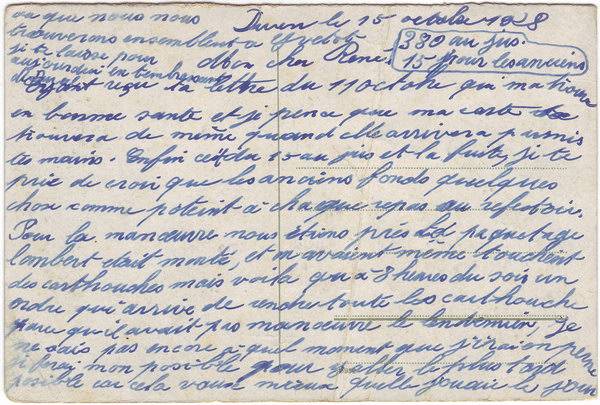 Duren le 15 octobre 1928
380 au jus.
15 pour les anciens
Mon cher René
Ayant reçu ta lettre du 11 octobre qui ma trouve
en bonne santé et je pence que ma carte te
trouvera de même quand elle arrivera parmis
tes mains. Enfin cest du 15 au jus et la fuite, je te
prie de croire que les anciens fonds quelques
chose comme poteint à chaque repas au refectoir.
Pour la manœuvre nous étions près le paquetage
lambert était monté, et m avaient même touchent
des carthouches mais voila qu a 8 heures du soir un
ordre qui arrive, de rendre toute les carthouche
parce qu il avait pas manœuvre le lendemain, Je
ne sais pas encore à quel moment que j irai en perm
je ferai mon posible pour aller le plus tard
posible car cela vaux mieux quelle soudie le jour
vu que nous nous
trouverons ensemblent a Yvetot
je te laisse pour
aujourdhui en tembrassant